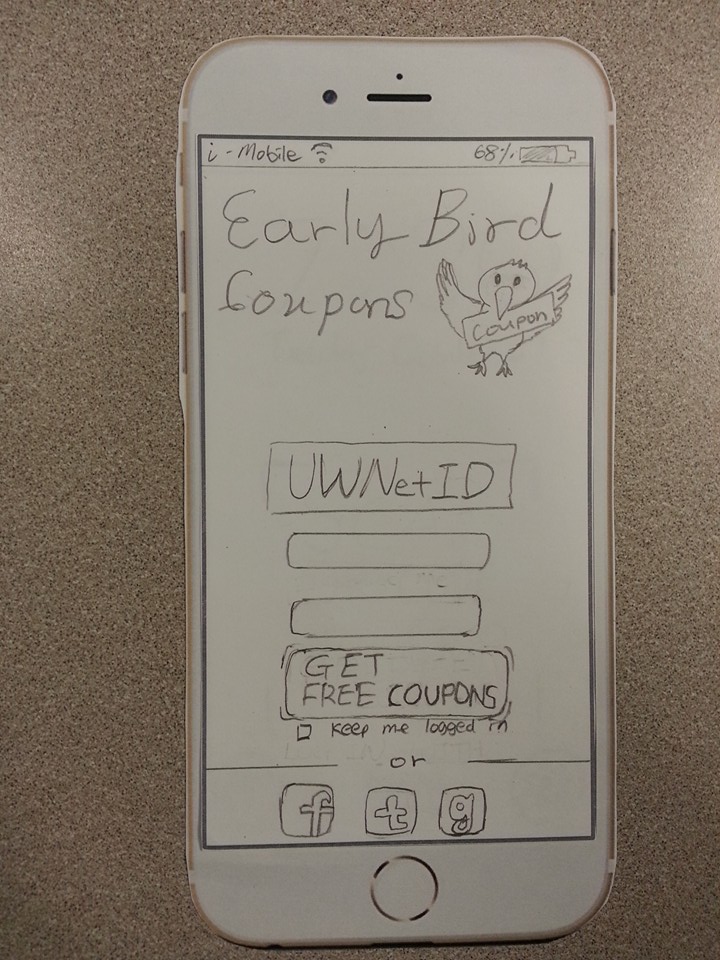 i-Mobile 68%
Early Bird
Coupons
Coupon
UWNetID
GET
FREE COUPONS
Keep me logged in
or
f t g